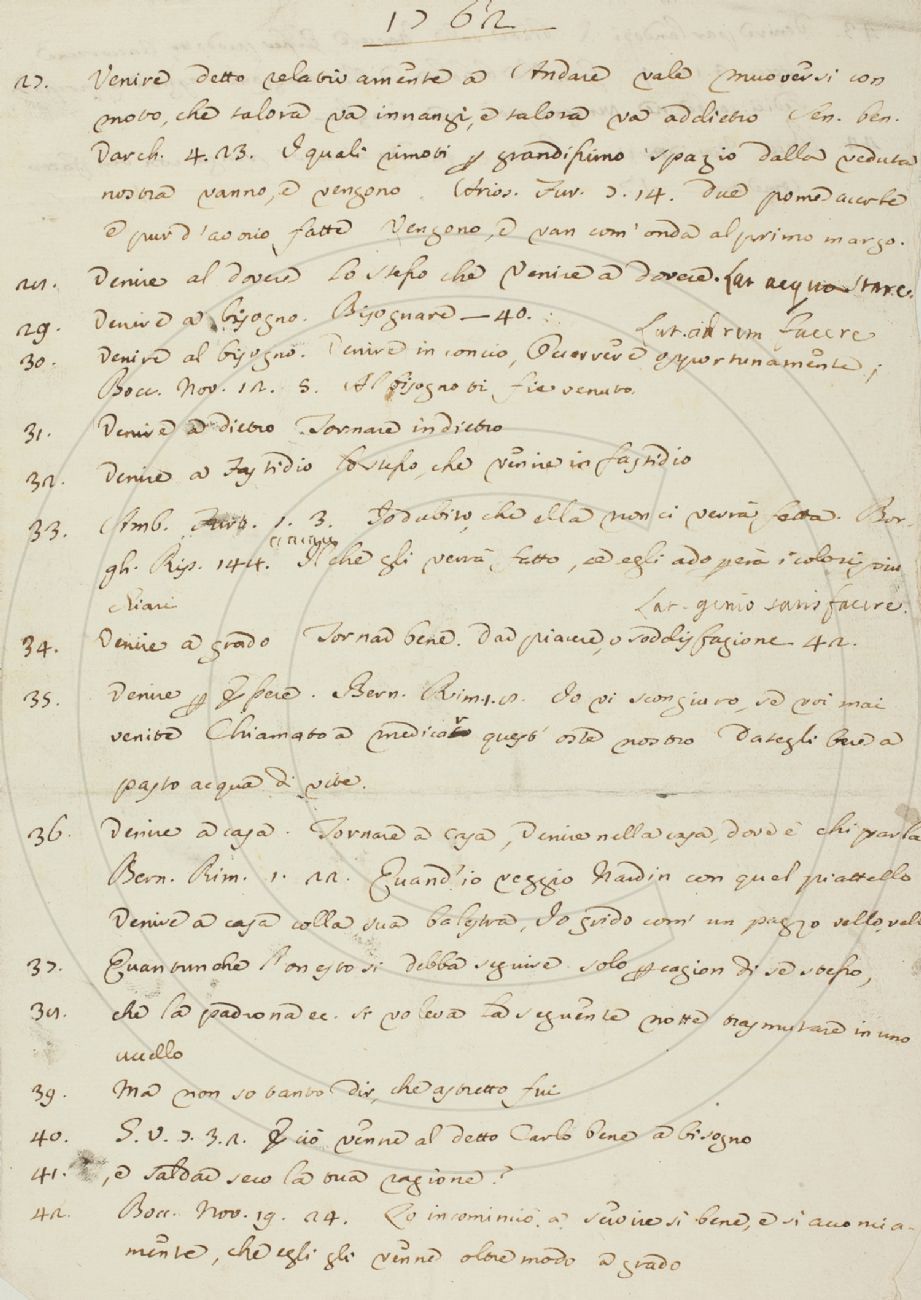 1762
27. Venire detto relativamente a Andare vale muoversi con
moto, che talora va innanzi, e talora va addietro Sen. ben.
Varch. 4. 23. I quali rimoti p grandissimo spazio dalla veduta
nostra vanno, e vengono. Arios. Fur. 7. 14. due pome acerbe
e pur d'avorio fatte Vengono, e van com' onda al primo margo.
28. Venire al dovere Lo stesso che Venire a dovere. Lat aequo stare.
29. Venire a bisogno. Bisognare — 40.
30. Venire al bisogno. Venire in concio, Occorrere opportunamente; Lat. ad rem facere
Bocc. Nov. 12. 8. Al bisogno vi fie venuto.
31. Venire a dietro Tornare indietro
32. Venire a Fastidio Lo stesso, che venire in fastidio
33. Amb. Furt. 1. 3. Io dubito, che ella non ci verrà fatta. Bor-
gh. Rip. 144. Il che gli verrà fatto, se egli adoperà i colori più
chiari Lat. genio satisfacere.
34. Venire a grado Tornar bene. Dar piacere, o soddisfazione 42.
35. Venire p Essere. Bern. Rim. 1. 8. Io vi scongiuro, se voi mai
venite Chiamato a medicar quest' oste nostro Dategli bere a
pasto acqua di vite.
36. Venire a casa. Tornare a casa, Venire nella casa, dov'è chi parla
Bern. Rim. 1. 22. Quand' io veggio Nardin con quel piattello
Venire a casa colla sua balestra, Io grido com' un pazzo vello, vel
37. Quantunche l'onesto si debba seguire solo p cagion di se stesso,
38. che la padrona ec. si voleva la seguente notte trasmutare in uno
uccello
39. Ma non so tanto dir, che astretto fui
40. G. V. 7. 3. 2. E ciò venne al detto Carlo bene a bisogno
41. , e saldar seco la tua ragione?
42. Bocc. Nov. 19. 24. Lo incominciò a servire sì bene, e sì acconcia-
mente, che egli gli venne oltre modo a grado